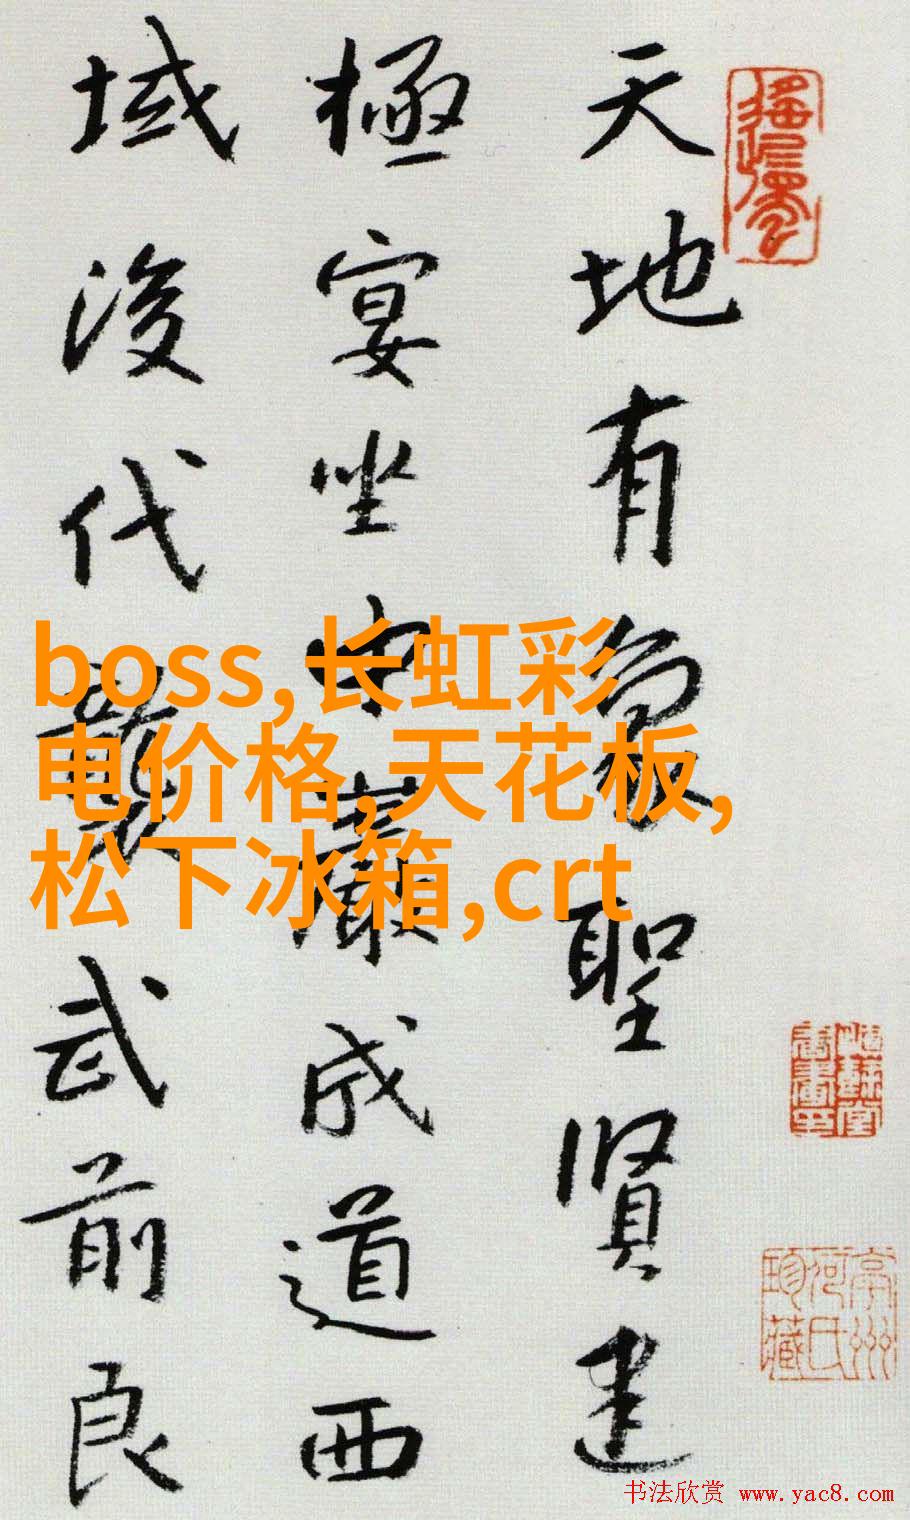 天地有象聖賢建
極宴坐中巖成道西
域後代襲武前良
boss,长虹彩
电价格,天花板,
松下冰箱,crt
书法欣赏 www.yac8.com